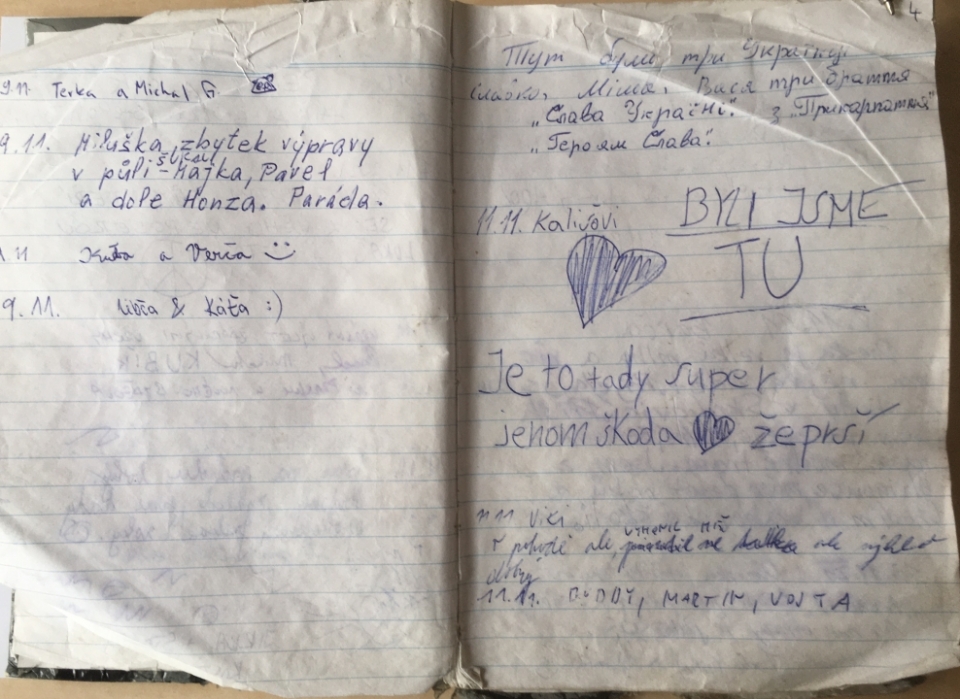 9.11. Terka a Michal G
9.11. Miluška, zbytek výpravy
v půli - Hájka, Pavel
a dole Honza. Paráda.
a Verča :)
9.11. Liboča & Káťa :)
4
Тут були три Українці
Міша, Вася три браття
"Слава Україні". з "Прикарпаття"
"Героям Слава".
11.11. Kališovi
BYLI JSME
TU
Je to tady super
jenom škoda že prší
11.11 Viki
v pohodě ale vyměnil míč ale výhled
dobrý
11.11. MARTIN, VOJTA